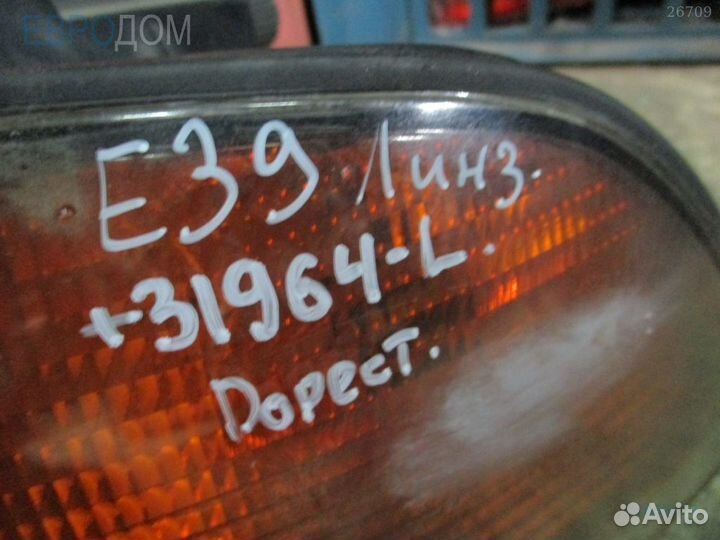 ЕВРОДОМ
26709
E39 Линз.
+31964-L.
Дорест.
Avito